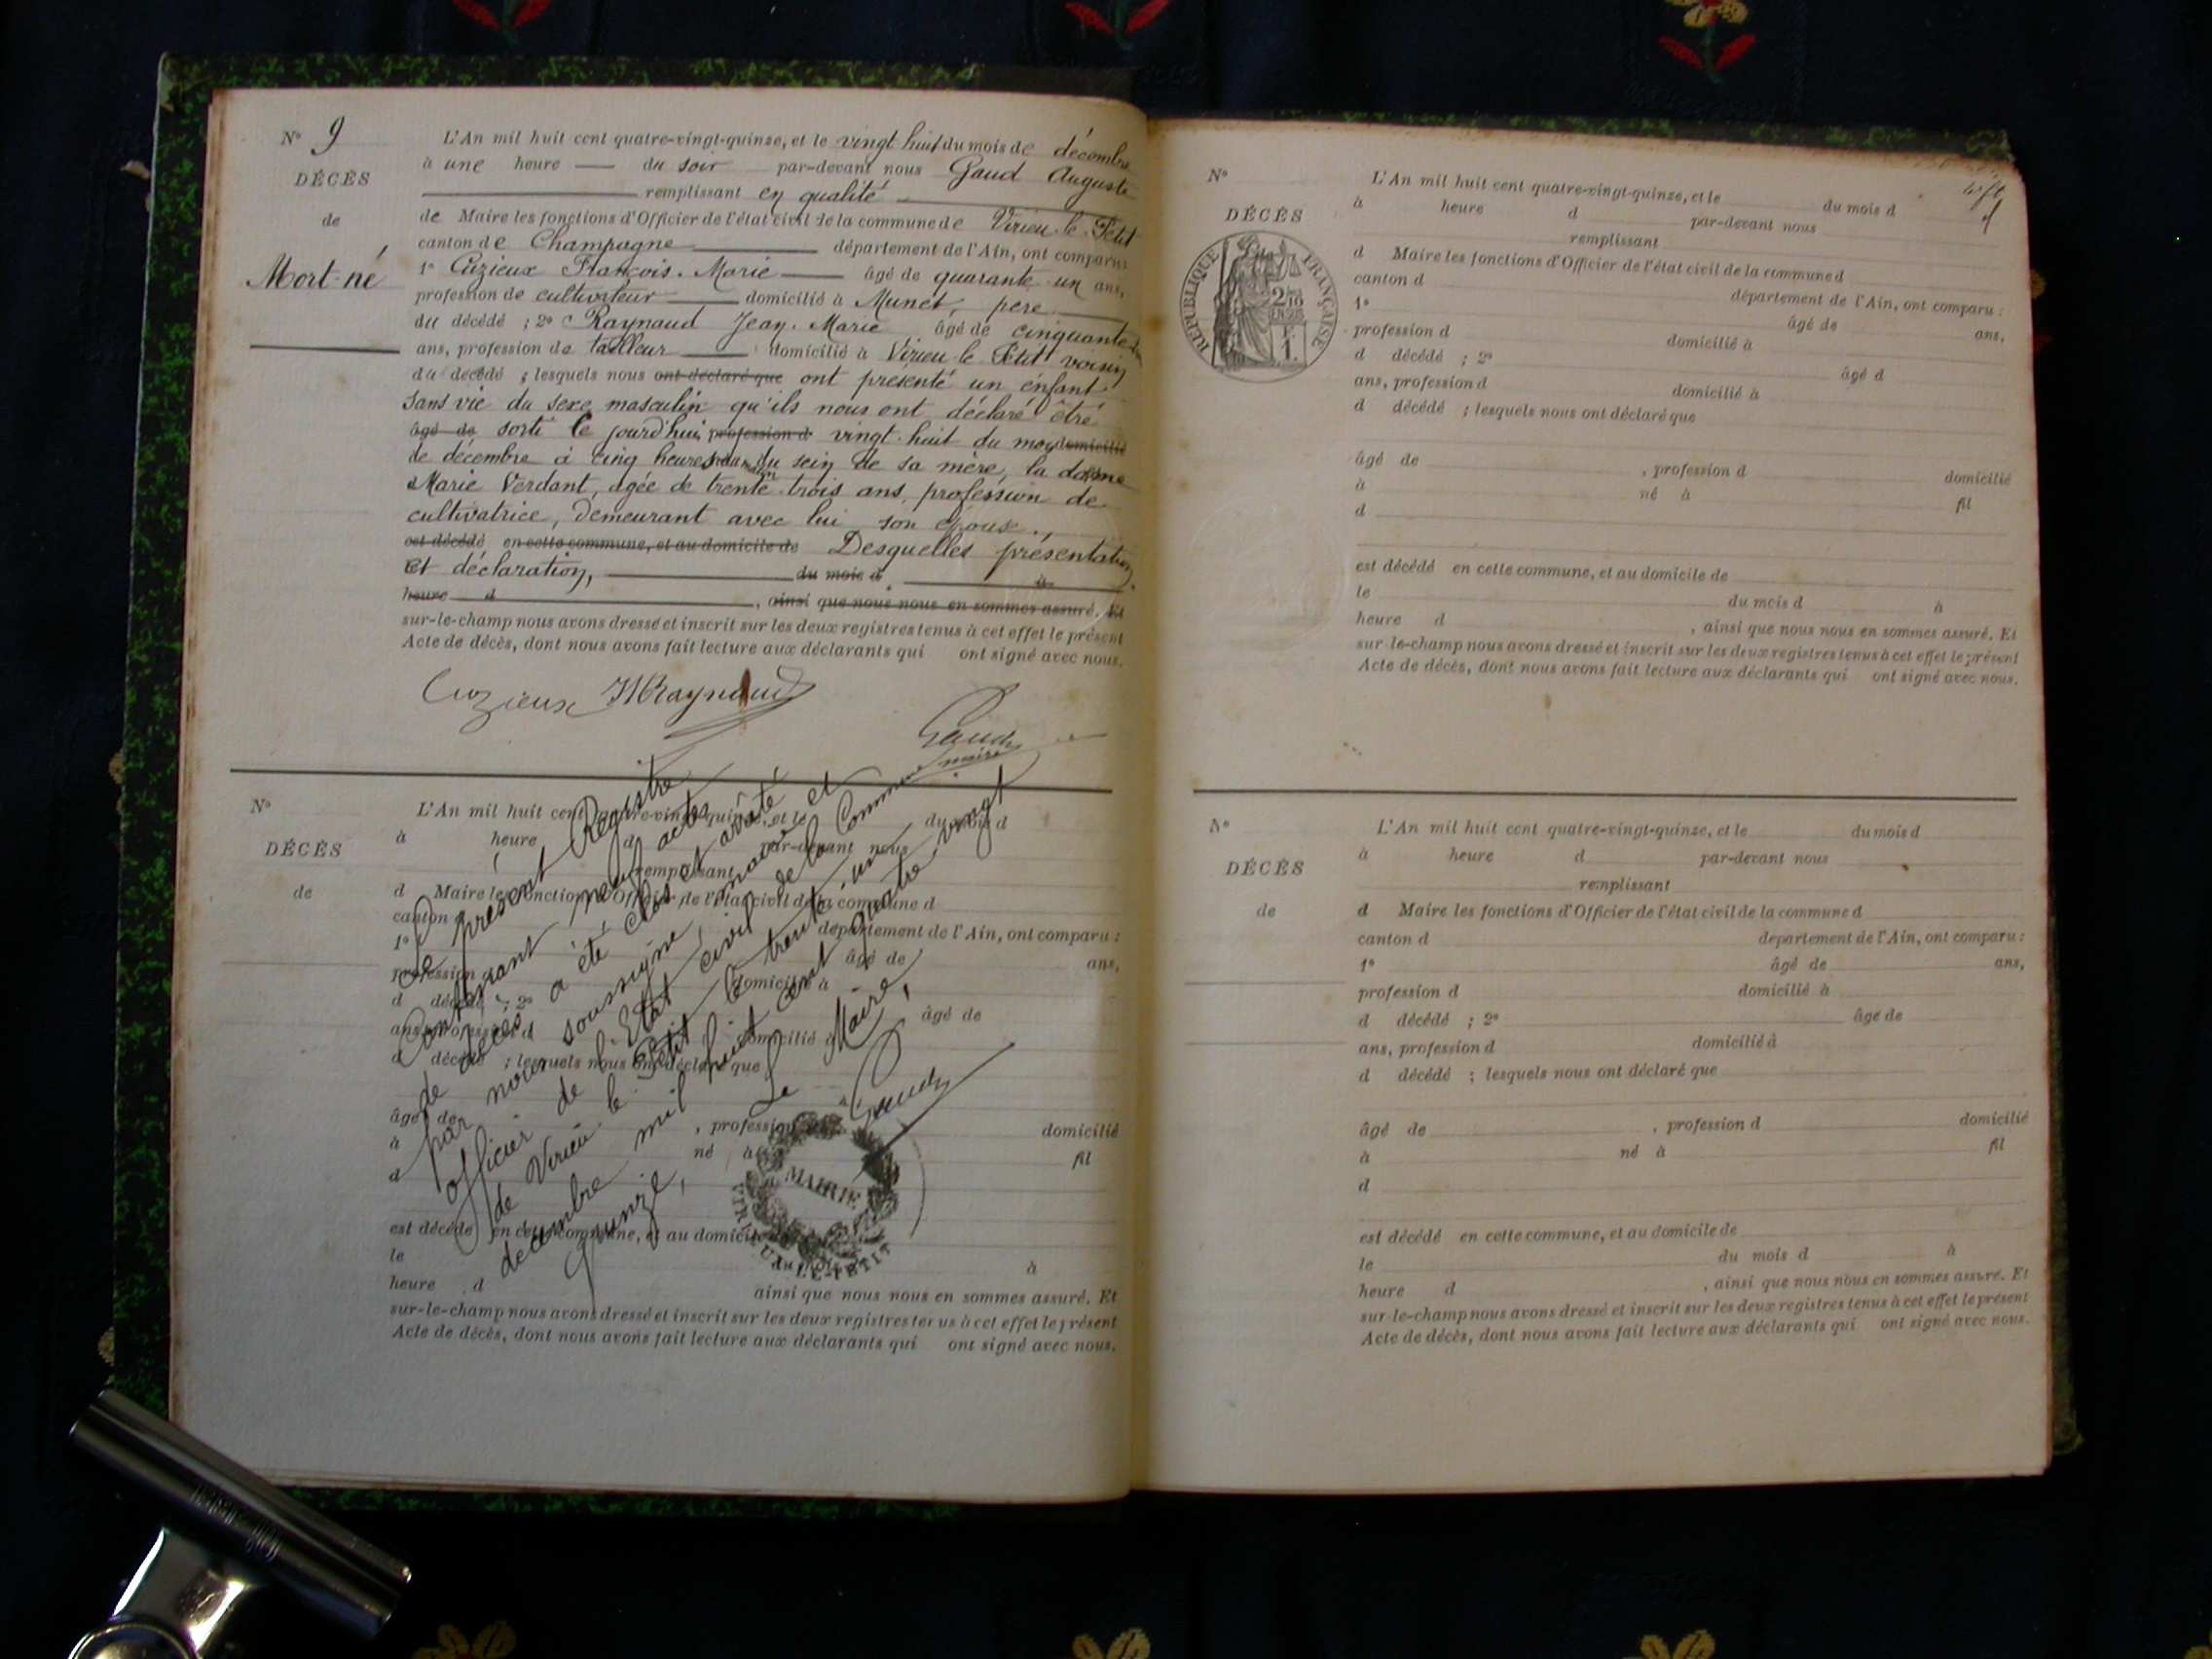 N° 9
DÉCÈS
de
Mort-né
L'An mil huit cent quatre-vingt-quinze, et le vingt huit du mois de décembre
à une heure du soir par-devant nous Gaud Auguste
remplissant en qualité
de Maire les fonctions d'Officier de l'état civil de la commune de Virieu-le-Petit
canton de Champagne département de l'Ain, ont comparu
1° Cuzieux François-Marie âgé de quarante un ans,
profession de cultivateur domicilié à Munet, père
du décédé ; 2° Raynaud Jean-Marie âgé de cinquante
ans, profession de tailleur domicilié à Virieu-le-Petit voisin
du décédé ; lesquels nous ont déclaré que ont présenté un enfant
sans vie du sexe masculin qu'ils nous ont déclaré être
âgé de sorti le jourd'hui profession d vingt-huit du mois domicilié
de décembre à cinq heures du sein de sa mère, la dame
Marie Verdant, agée de trente-trois ans, profession de
cultivatrice, demeurant avec lui son époux.
est décédé en cette commune, et au domicile de Desquelles présentation
et déclaration, du mois d à
heure d , ainsi que nous nous en sommes assuré. Et
sur-le-champ nous avons dressé et inscrit sur les deux registres tenus à cet effet le présent
Acte de décès, dont nous avons fait lecture aux déclarants qui ont signé avec nous.
Cuzieux JMRaynaud
Gaud
maire
N°
DÉCÈS
de
L'An mil huit cent quatre-vingt-quinze, et le du mois d
à heure d par-devant nous
remplissant
d Maire les fonctions d'Officier de l'état civil de la commune d
canton d département de l'Ain, ont comparu :
1° âgé de ans,
profession d domicilié à
d décédé ; 2° âgé de
ans, profession d domicilié à
d décédé ; lesquels nous ont déclaré que
âgé de , profession d domicilié
à né à fil
d
est décédé en cette commune, et au domicile de
le du mois d à
heure d ainsi que nous nous en sommes assuré. Et
sur-le-champ nous avons dressé et inscrit sur les deux registres tenus à cet effet le présent
Acte de décès, dont nous avons fait lecture aux déclarants qui ont signé avec nous.
Le présent Registre
Contenant neuf actes
de décès a été clos et arrêté
par nous soussigné, maire et
officier de l'Etat civil de la Commune
de Virieu-le-Petit le trente un
décembre mil huit cent quatre vingt
quinze,
Le Maire,
Gaud
MAIRIE
VIRIEU-LE-PETIT
N°
DÉCÈS
RÉPUBLIQUE FRANÇAISE
L'An mil huit cent quatre-vingt-quinze, et le du mois d
à heure d par-devant nous
remplissant
d Maire les fonctions d'Officier de l'état civil de la commune d
canton d département de l'Ain, ont comparu :
1° âgé de ans,
profession d domicilié à
d décédé ; 2° âgé d
ans, profession d domicilié à
d décédé ; lesquels nous ont déclaré que
âgé de , profession d domicilié
à né à fil
d
est décédé en cette commune, et au domicile de
le du mois d à
heure d , ainsi que nous nous en sommes assuré. Et
sur-le-champ nous avons dressé et inscrit sur les deux registres tenus à cet effet le présent
Acte de décès, dont nous avons fait lecture aux déclarants qui ont signé avec nous.
N°
DÉCÈS
de
L'An mil huit cent quatre-vingt-quinze, et le du mois d
à heure d par-devant nous
remplissant
d Maire les fonctions d'Officier de l'état civil de la commune d
canton d département de l'Ain, ont comparu :
1° âgé de ans,
profession d domicilié à
d décédé ; 2° âge de
ans, profession d domicilié à
d décédé ; lesquels nous ont déclaré que
âgé de , profession d domicilié
à né à fil
d
est décédé en cette commune, et au domicile de
le du mois d à
heure d , ainsi que nous nous en sommes assuré. Et
sur-le-champ nous avons dressé et inscrit sur les deux registres tenus à cet effet le présent
Acte de décès, dont nous avons fait lecture aux déclarants qui ont signé avec nous.